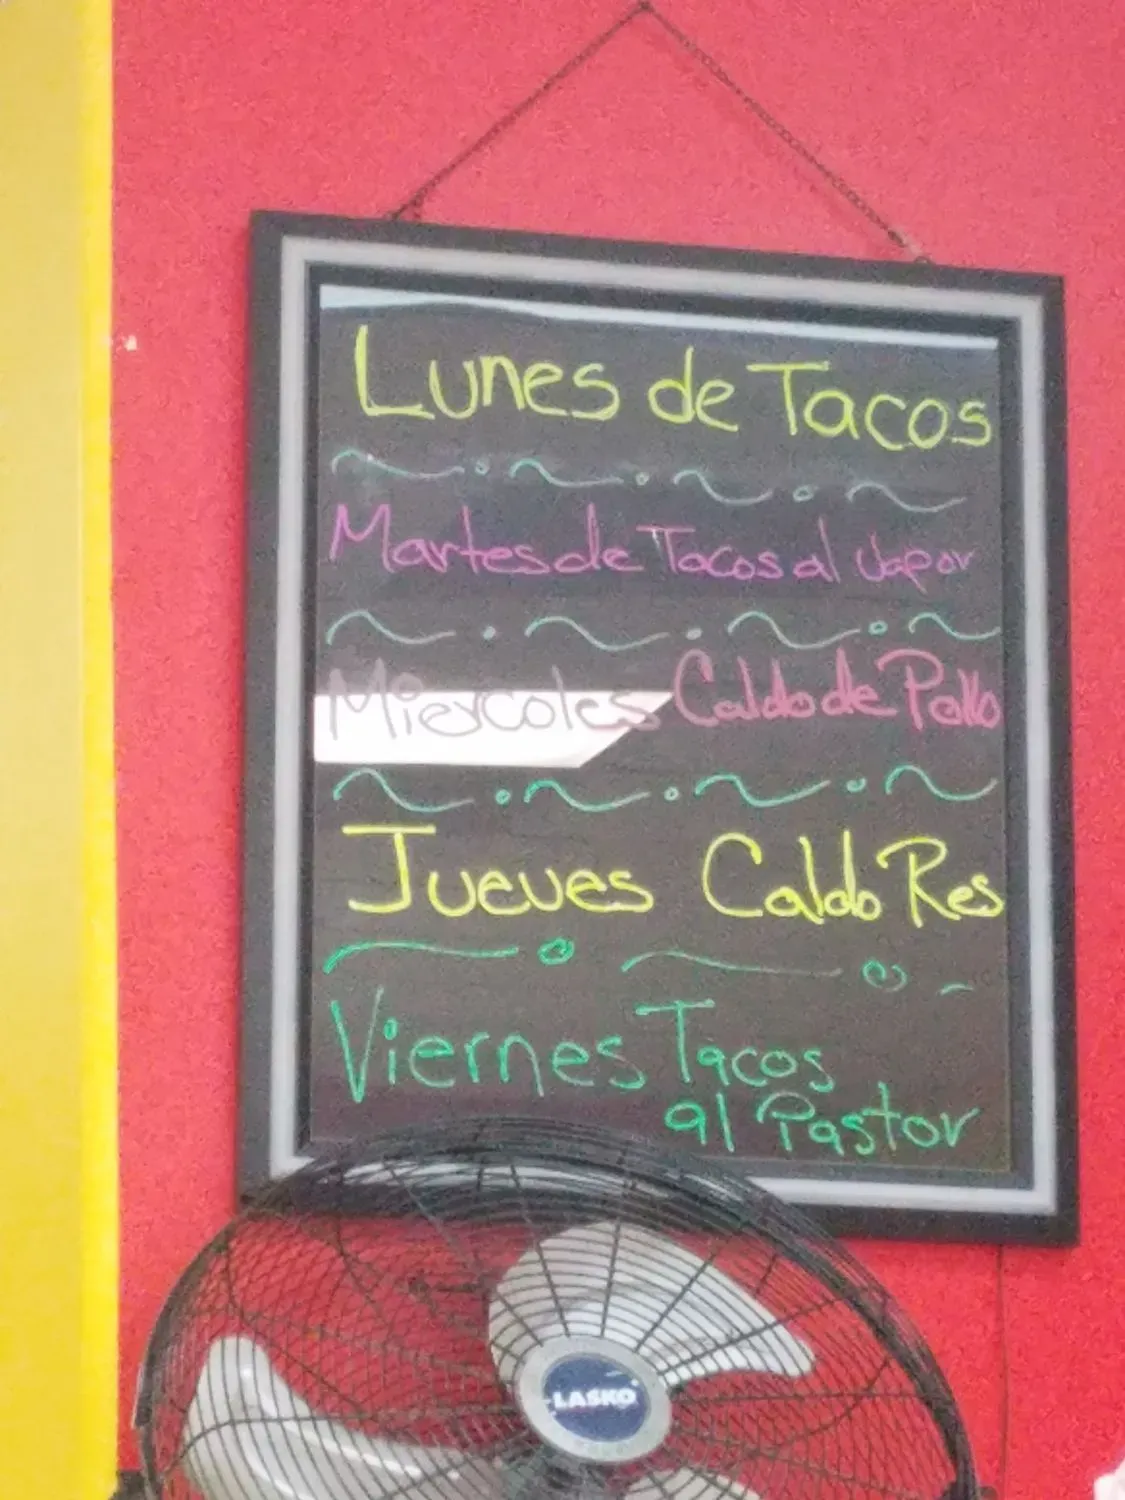 Lunes de Tacos
Martes de Tacos al vapor
Miercoles Caldo de Pollo
Jueves Caldo Res
Viernes Tacos
al Pastor
LASKO